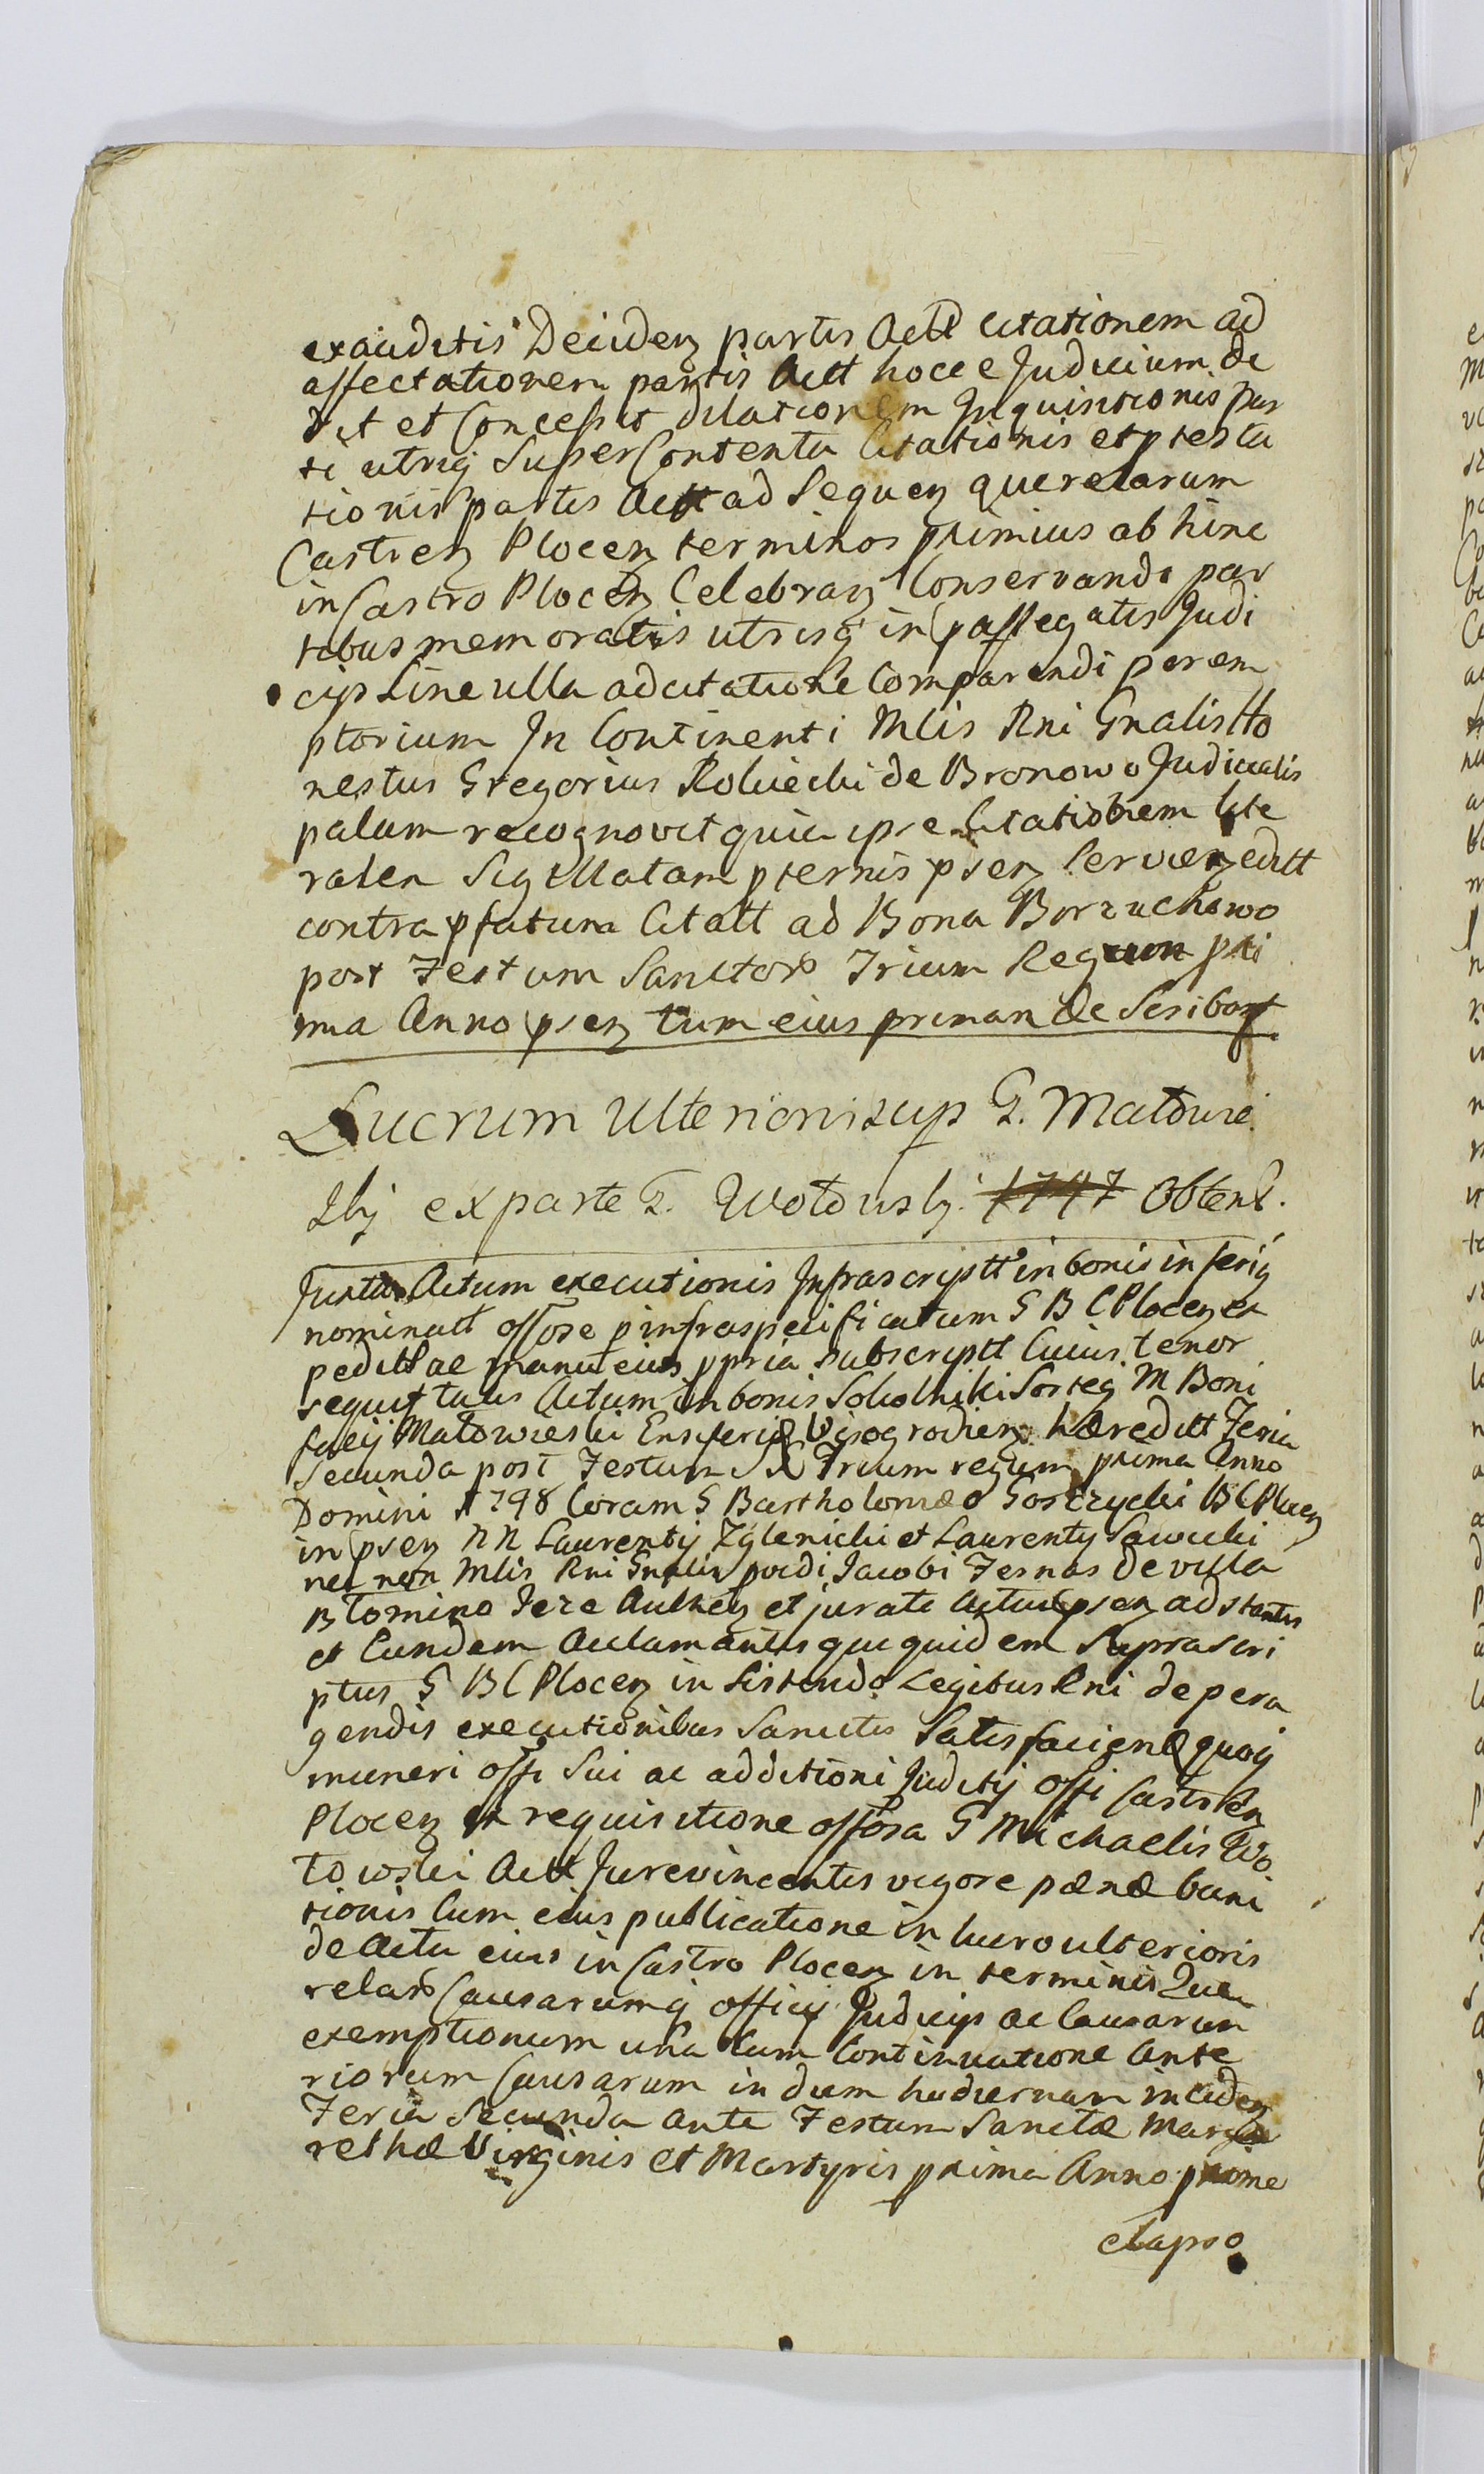 exauditis Deinden partis Actt citationem ad
affectationem partis Actt hocce Judicium de
dit et Concessit dilationem Inquisitionis par
ti utriq Super Contenta Citationis et ptesta
tionis partis Actt ad Sequen querelarum
Castren Plocen terminos primius ab hinc
in Castro Plocen Celebran Conservandi par
tibus memoratis utrisq in passegatis Judi
cijs Sine ulla adcitatione Comparendi perem
ptorium In Continenti Mlis Rni Gnalis Ho
nestus Gregorius Rolviecki de Bronowo Judicialis
palam recognovit quia ipse Citationem lite
ralem Sigillatam pternis psen Servien editt
contra pfatum Citatt ad Bona Borzuchowo
post Festum Sanctor Trium Regum pri
ma Anno psen tum eius priman de Scribart
Lucrum Ulterioris sup G. Matowie
skij ex parte G. Wotowskj 1747 Obtent.
Juxta Actum executionis Infrascriptt in bonis inferiq
nominatt offose p infraspecificatum G B C Plocen ex
peditt ac manu eius ppria subscriptt Cuius tenor
sequit talis Actum in bonis Sokolniki Sorteg M Boni
facij Matowieski Ensiferi Visogrodien hæreditt Feria
Secunda post Festum SS Trium regum prima Anno
Domini 1798 Coram G Bartholomæo Gostzycki B C Plocen
in psen NN Laurentij Zglenicki et Laurenty Sawicki
nec non Mlis Rni Gnalis pvidi Jacobi Fernas de villa
Blomino Jeze Authen et jurati Actui psen adstantis
et Eundem Acclamantis qui quidem Suprascri
ptus G B C Plocen in Sistendo Legibus Rni de pera
gendis executionibus Sancitis Satisfaciend quoq
muneri offi Sui ac additioni Juditij offi Castren
Plocen ex requisitione offosa G Michaelis Wo
towski Actt Jurevincentis vigore pænæ bani
tionis Cum eius publicatione in lucro ulterioris
de Actu eius in Castro Plocen in terminis Que
relar Causarumq officij Judicijs ac Causarum
exemptionum una Cum Continuatione Ante
riorum Causarum in diem hodiernam inciden
Feria Secunda Ante Festum Sanctæ Marga
rethæ Virginis et Martyris prima Anno proxime
elapso